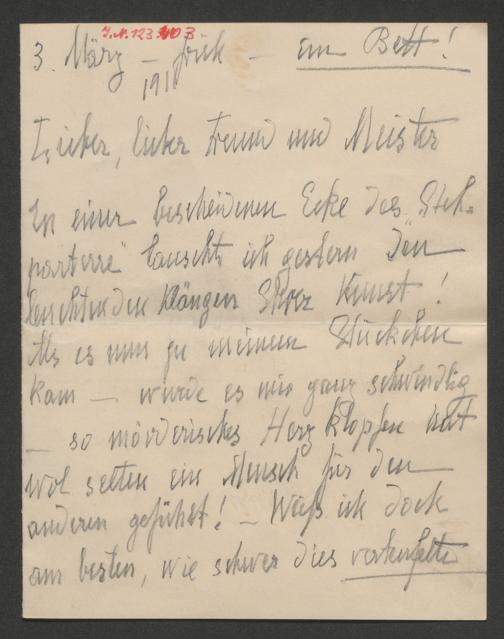 J.N. 123.403
3. März – früh – im Bett!
1918
Lieber, lieber Freund und Meister
In einer bescheidenen Ecke des „Steh-
parterre" lauscht ich gestern den
leuchtenden Klängen Ihrer Kunst!
Als es nun zu meinem Stückchen
kam – wurde es mir ganz schwindlig
– so mörderisches Herzklopfen hat
wol selten ein Mensch für den
anderen gefühlt! – Weiß ich doch
am besten, wie schwer dies verteufelte